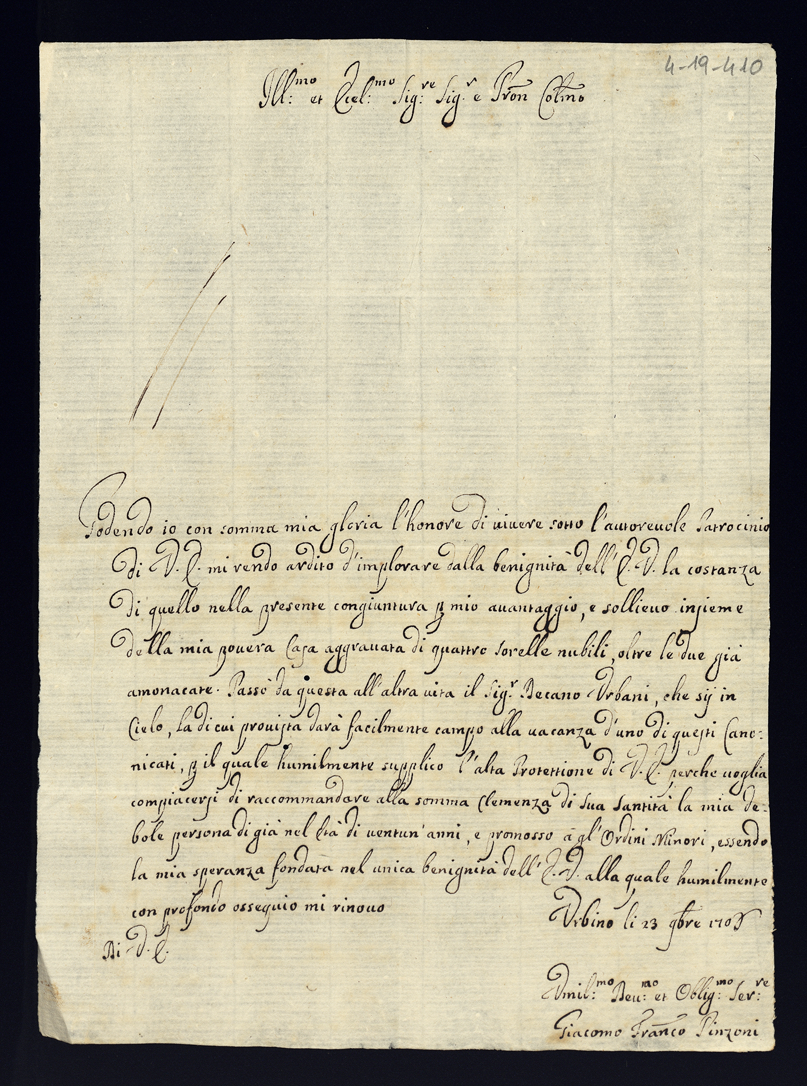 4-19-410
Ill:mo et Eccl:mo Sig:re Sig:r e Pron Colmo
Godendo io con somma mia gloria l'honore di vivere sotto l'autorevole Patrocinio
di V.E. mi rendo ardito d'implorare dalla benignità dell'E.V. la costanza
di quello nella presente congiuntura p mio avantaggio, e sollievo insieme
della mia povera Casa aggravata di quattro sorelle nubili, oltre le due già
amonacate. Passò da questa all'altra vita il Sig.r Decano Urbani, che sij in
Cielo, la di cui provista darà facilmente campo alla vacanza d'uno di questi Cano-
nicati, p il quale humilmente supplico l'alta Protettione di V.E. perche voglia
compiacersi di raccommandare alla somma Clemenza di Sua Santità la mia de-
bole persona di già nel Età di ventun'anni, e promosso à gl'Ordini Minori, essendo
la mia speranza fondata nel unica benignità dell'E.V. alla quale humilmente
con profondo ossequio mi rinovo
Urbino li 23 9bre
Di V.E.
Umil:mo Dev:mo et Oblig:mo Ser:re
Giacomo Franco Pinzoni